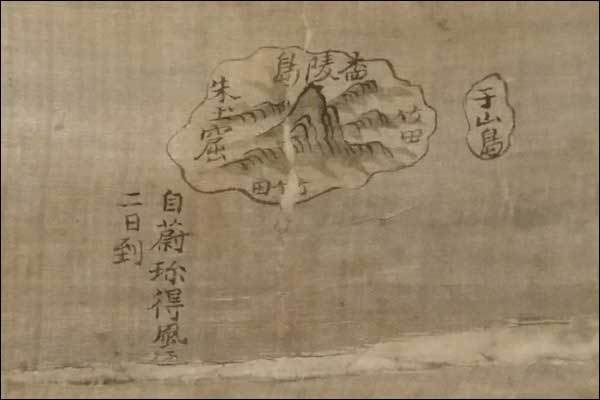 陵島
于山島
竹田
竹田
朱土窟
自蔚珍得風
二日到